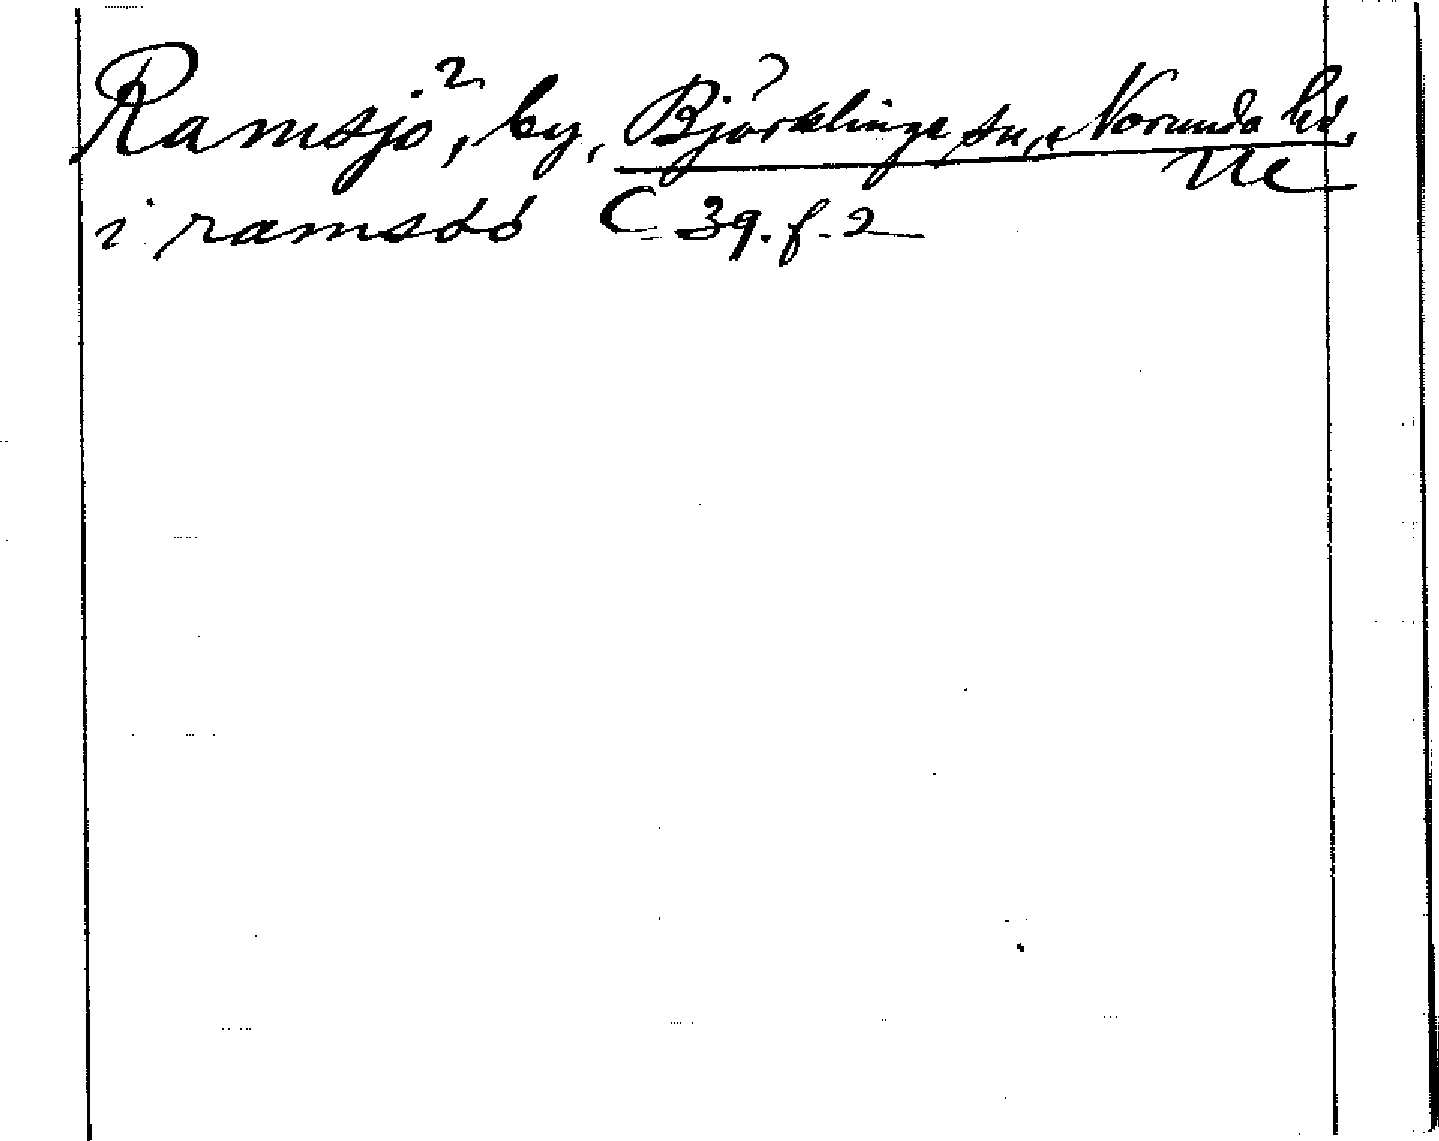 Ramsjö, by, Björklinge sn, Norunda hd,
i ramsdó C 39. f. 2